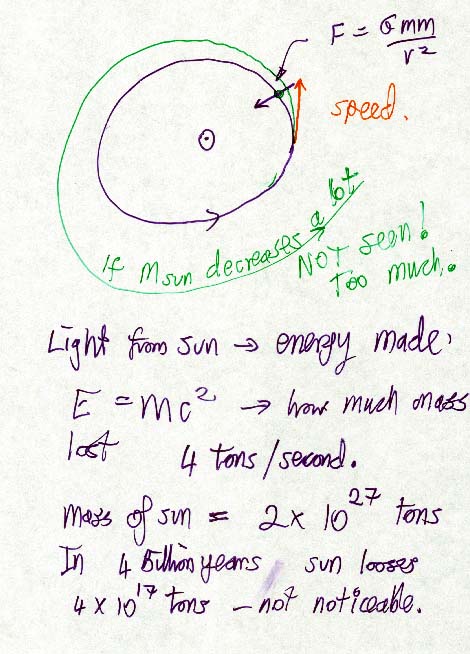 F = Gmm/r²
speed.
If Msun decreases a lot
NOT seen!
Too much.
Light from sun → energy made:
E = mc² → how much mass
lost 4 tons/second.
Mass of sun = 2 x 10²⁷ tons
In 4 Billion years sun looses
4 x 10¹⁷ tons – not noticeable.